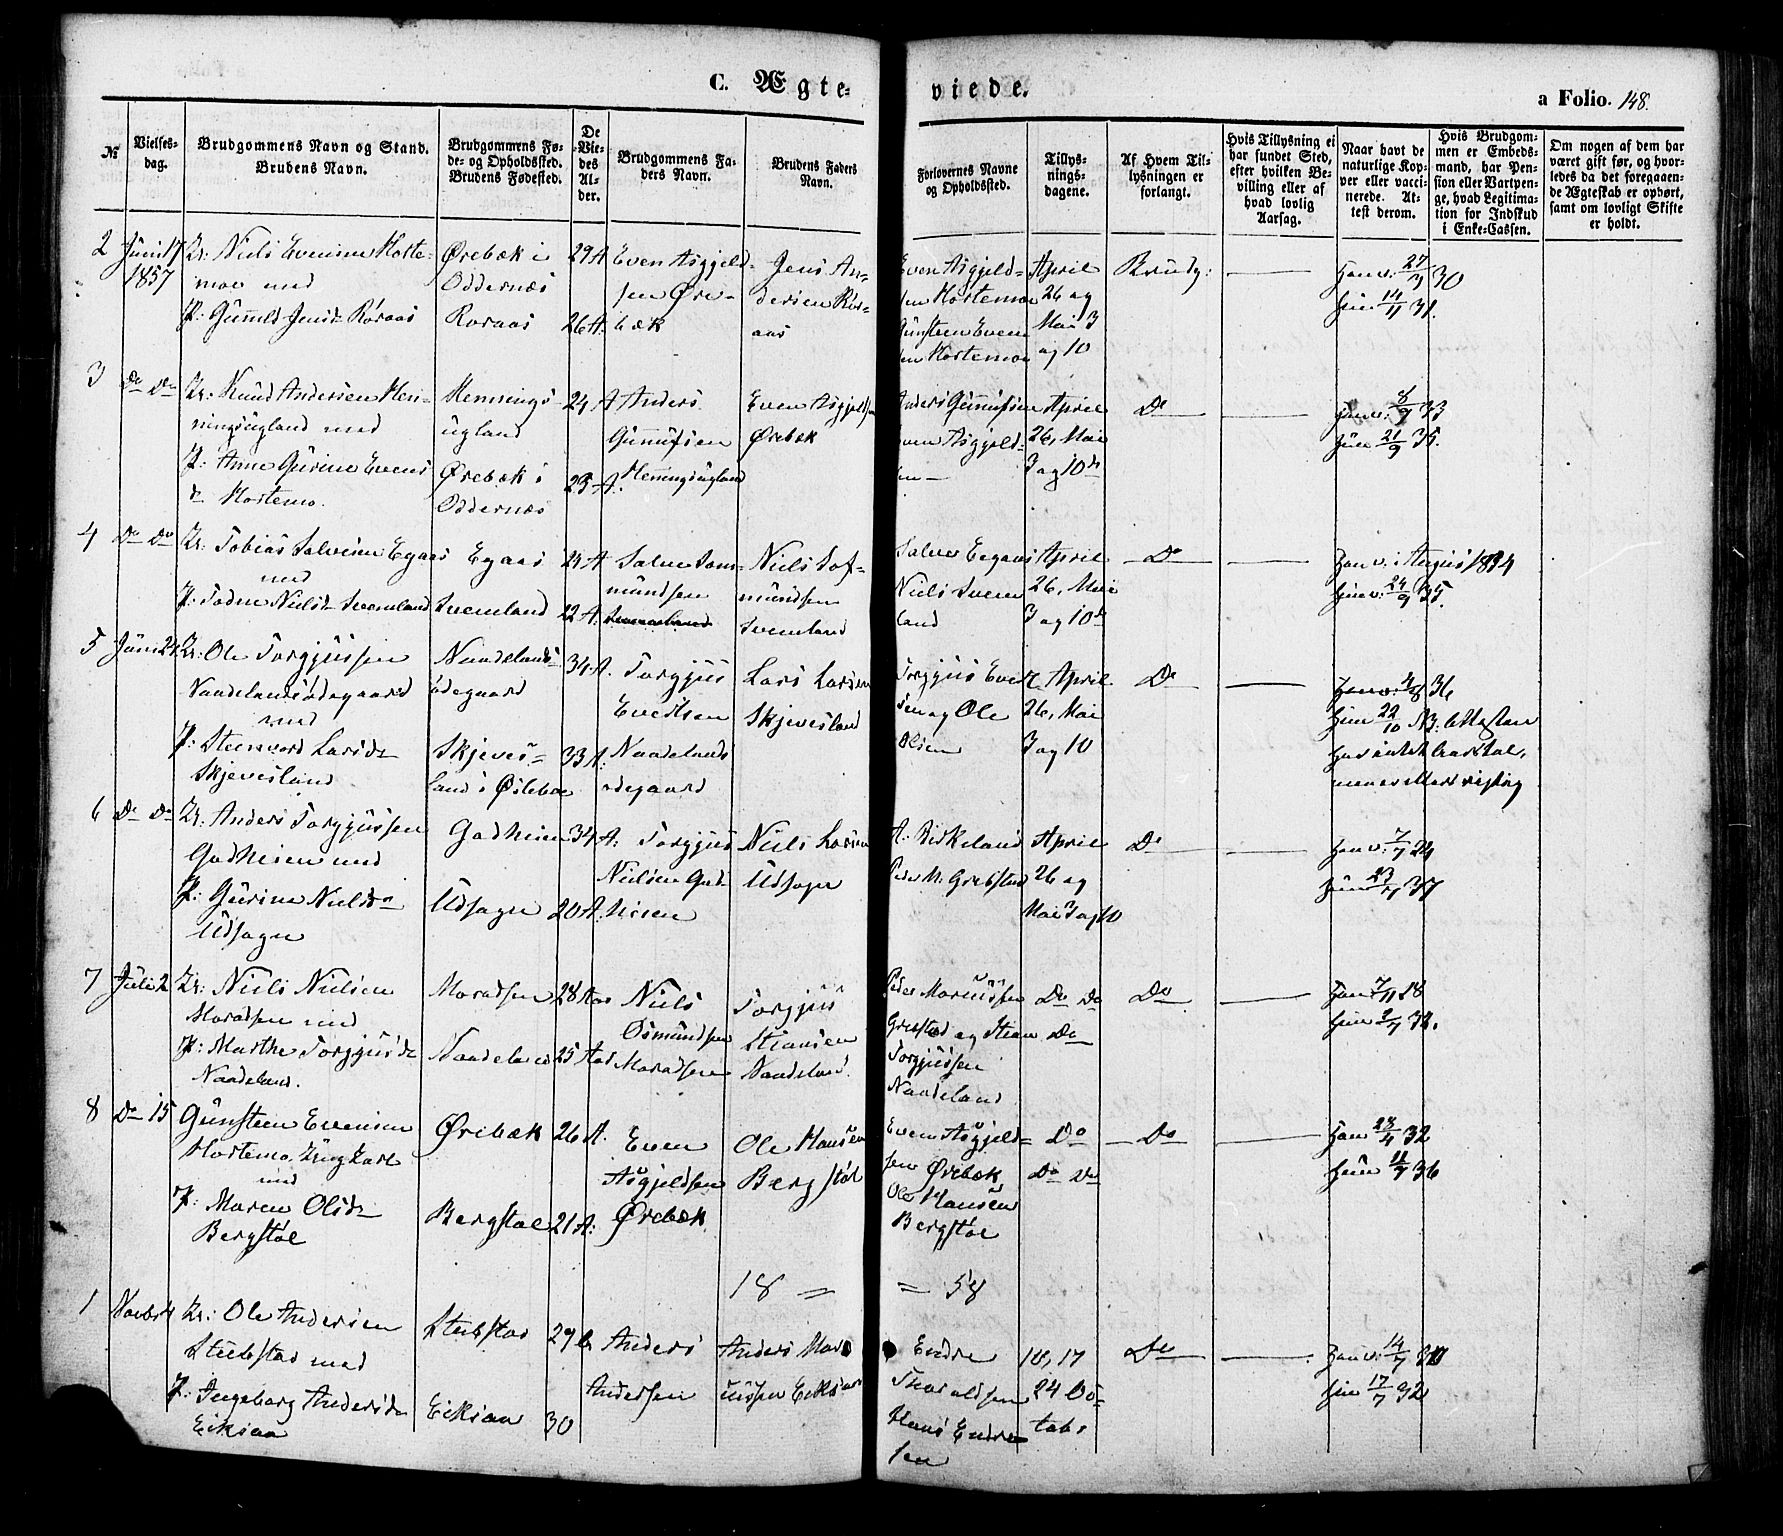 C. Ægte- viede.
a Folio. 148.
№
Vielses-
dag.
Brudgommens Navn og Stand.
Brudens Navn.
Brudgommens Fø-
de- og Opholdssted.
Brudens Fødested.
De
Vie-
des
Al-
der.
Brudgommens Fa-
ders Navn.
Brudens Faders
Navn.
Forlovernes Navne
og Opholdssted.
Tillys-
nings-
dagene.
Af Hvem Til-
lysningen er
forlangt.
Hvis Tillysning ei
har fundet Sted,
efter hvilken Be-
villing eller af
hvad lovlig
Aarsag.
Naar havt de
naturlige Kop-
per eller vacci-
nerede. At-
test derom.
Hvis Brudgom-
men er Embeds-
mand, har Pen-
sion eller Vartpen-
ge, hvad Legitima-
tion for Indskud
i Enke-Cassen.
Om nogen af dem har
været gift før, og hvor-
ledes da det foregaaen-
de Ægteskab er ophørt,
samt om lovligt Skifte
er holdt.
2
Juni 17
1857
Niels Evensen
med
P: Gunild Jensd. Røraas
Ørebæk i
Oddernæs
Røraas
29 A
26 A.
Even Asgjeld-
sen Øre-
bæk
Jens An-
dersen Rør-
aas
Even Asgjeld-
sen Hortemo
Gunsteen Even
sen Hortemo
April
26 og
Mai 3
og 10
Brudg:
Han v: 27/9 30
Hun 14/11 31.
3
Do Do
Knud Andersen Hen-
ningsugland med
P: Anne Gurine Evens
d. Hortemo.
Hennings-
ugland
Ørebæk i
Oddernæs
24 A
23 A.
Anders
Gunnufsen
Henningsugland
Even Asgjeldsen
Ørebæk
Anders Gunnufsen
Even Asgjeld-
sen
April
26, Mai
3 og 10de
Do
Han v: 8/7 33
Hun 21/9 35.
4
Do Do
Tobias Salvesen Egaas
med
P: Nielsd. Svenland
Egaas
Svenland
22 A.
Salve
mundsen
Niels
mundsen
Svenland
Salve Eegaas
Niels Sven
land
April
26, Mai
3 og 10de
Do
Han v. i August 1834
Hun v: 24/9 35.
5
Juni 24
Ole Torgjussen
Naadelandsødegaard
med
P: Larsd.
Skjevesland
Naadelands-
ødegaard
Skjeves-
land i Øslebø
34 A.
33 A.
Torgjus
Evertsen
Naadelands
ødegaard
Lars Larsen
Skjevesland
Torgjus Evert
sen og Ole
Olsen
April
26, Mai
3 og 10
Do
36
Hun 22/10
6
Do Do
Anders Torgjussen
Godheien med
P: Gurine Nielsd.
Udsogn
Godheien
Udsogn
34 A.
20 A.
Torgjus
Nielsen God-
heien
Niels Larsen
Udsogn
A. Birkeland
Peder M. Grebstad
April
26 og
Mai 3 og 10
Do
Han v: 7/7 24
Hun 23/7 37
7
Juli 2
Niels Nielsen
med
P: Marthe Torgjusd.
Naadeland.
Naadeland
28 Aar
25 Aar
Niels
Osmundsen
Torgjus
Stiansen
Naadeland.
Peder Marcussen
Grebstad og Stian
Torgjussen
Naadeland
Do Do
Do
Do
Han 7/11 18
Hun 2/7 32.
8
Do 15
Gunsteen Evensen
Hortemo, Ungkarl
med
P: Maren Olsd.
Bergstøl
Ørebæk
Bergstøl
26 A.
21 A.
Even
Asgjeldsen
Ørebæk
Ole Hansen
Bergstøl
Even Asgjeld-
sen Ørebæk
Ole Hansen
Bergstøl
Do
Do Do
Do
Han 23/4 32
Hun 11/7 36
18 = = 58
1
Novbr 4
Ole Andersen
Stubstad med
P: Ingeborg Andersd.
Eiksaa
Stubstad
Eiksaa
29
30
Anders
Andersen
Anders
Endre
Thoraldsen
Hans Endre-
sen
10, 17
24 Oc-
tobr
Do
Han v: 14/7 30
Hun 17/7 32